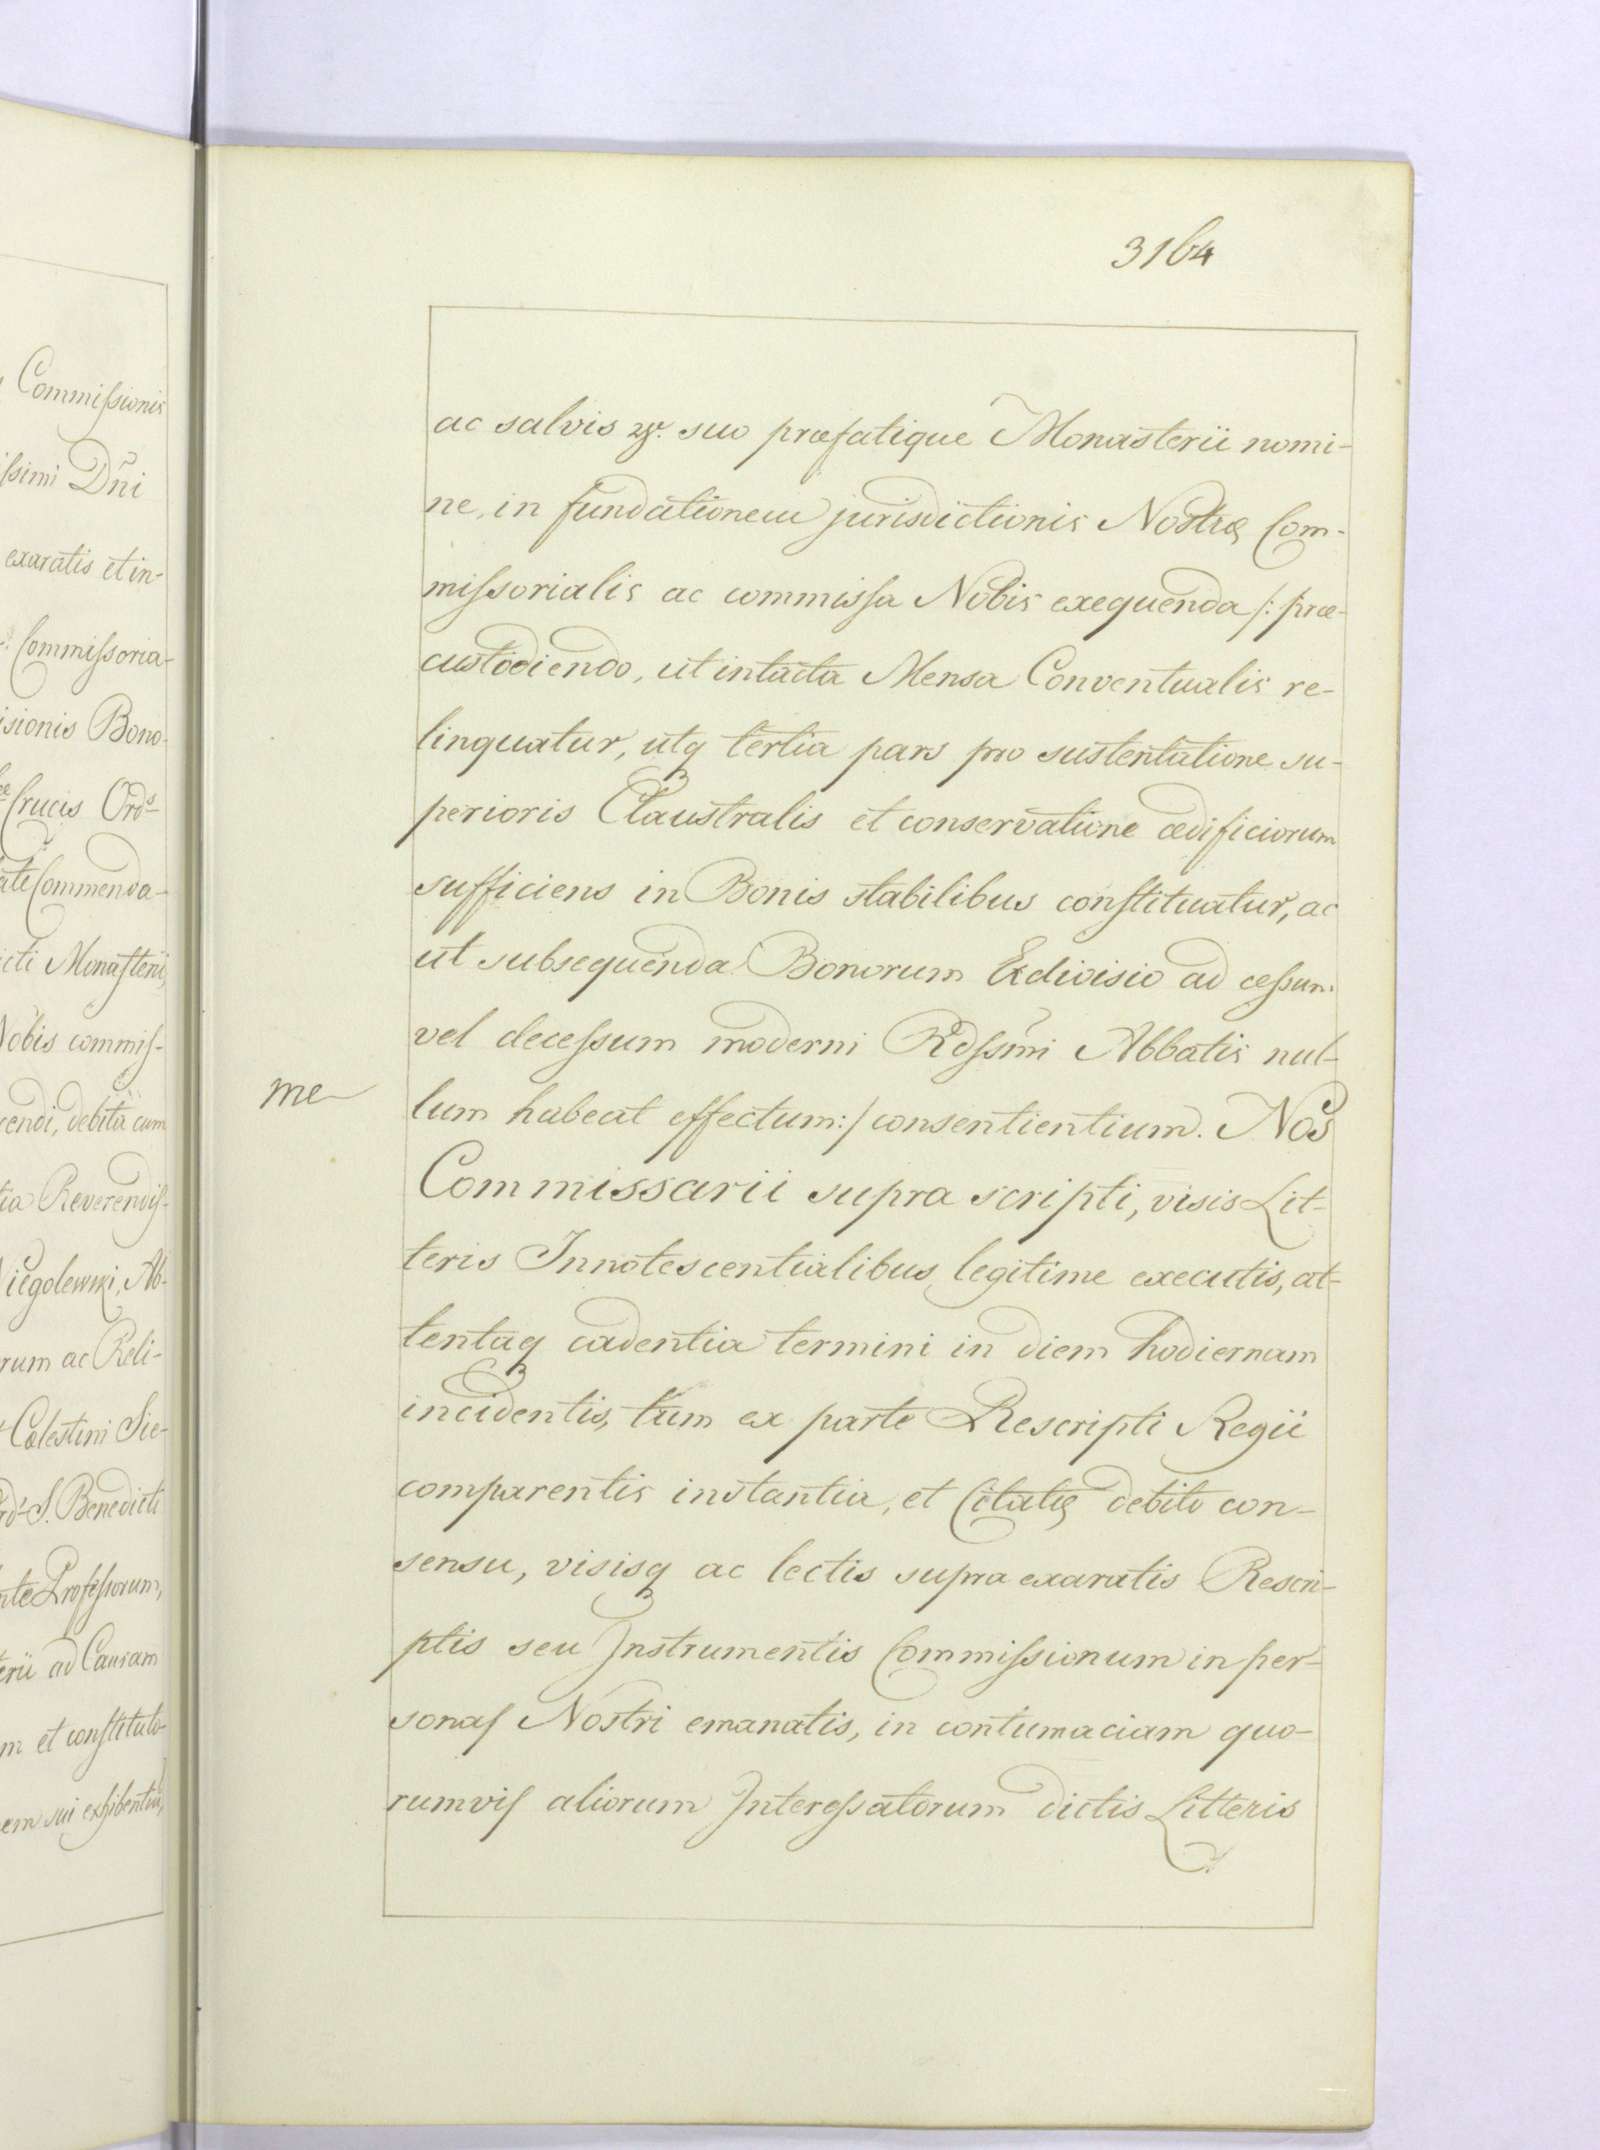 Commissionis
ssimi Dñi
exaratis et in-
Commissoria-
isionis Bono-
Crucis Ord.s
ate Commenda-
icti Monasterii,
Nobis commis-
cendi, debita cum
tia Reverendis-
Niegolewski, Ab-
rum ac Reli-
Cœlestini Sie-
rd. S. Benedicti
nte Professorum,
erii ad Causam
m et constituto-
em sui exhibentiu,
3164
ac salvis suo præfatique Monasterii nomi-
ne, in fundationem jurisdictionis Nostræ Com-
missorialis ac commissa Nobis exequenda /: præ-
custodiendo, ut intacta Mensa Conventualis re-
linquatur, utq tertia pars pro sustentatione su-
perioris Claustralis et conservatione ædificiorum
sufficiens in Bonis stabilibus constituatur, ac
ut subsequenda Bonorum Exdivisio ad cessum
vel decessum moderni Rdssmi Abbatis nul-
me
lum habeat effectum :/ consentientium. Nos
Commissarii supra scripti, visis Lit-
teris Innotescentialibus legitime executis, at-
tentaq cadentia termini in diem hodiernam
incidentis, tum ex parte Rescripti Regii
comparentis instantia, et Citatæ debito con-
sensu, visisq ac lectis supra exaratis Rescri-
ptis seu Instrumentis Commissionum in per-
sonas Nostri emanatis, in contumaciam quo-
rumvis aliorum Interessatorum dictis Litteris